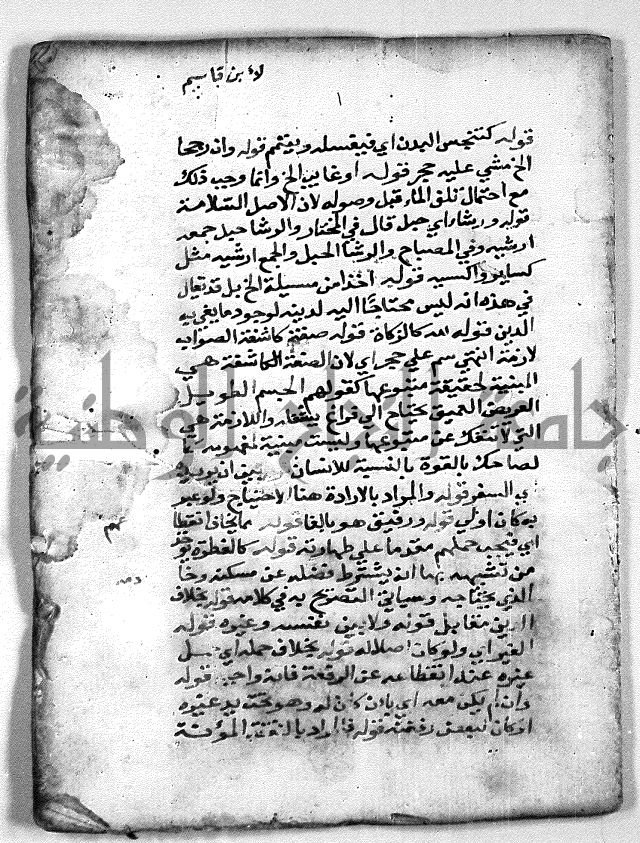 لابن قاسم
قوله كتنجس البدن اي فيغسله ويتمم قوله وان رجحا
الخ مشي عليه حجر قوله او غايب الخ وانما وجب ذلك
مع احتمال تلف المار قبل وصوله لان الاصل السلامة
قوله ورشاء اي حبل قال في المختار والرشا حبل جمعه
ارشيه وفي المصباح والرشا الحبل والجمع ارشيه مثل
كساء واكسيه قوله اخذا من مسيلة الخ بل قد يقال
في هذه انه ليس محتاجا اليه لدينه لوجود ما يفي به
الدين قوله لله كالزكاة قوله صفة كاشفة الصواب
لازمة انتهي سم علي حجر اي لان الصفة الكاشفة هي
المبينة لحقيقة متبوعها كقولهم الجسم الطويل
العريض العميق يحتاج الي فراغ يشغله واللازمة هي
التي لا تنفك عن متبوعها وليست مبينة لمفهومه
لضاحك بالقوة بالنسبة للانسان
ي السفر قوله والمراد بالارادة هنا الاحتياج ولو غير
به كان اولي قوله ورقيق هو بالغا قوله
اي فيجب حملهم مقدما علي طهارته قوله كالفطرة يوخذ
من تشبيهه بها انه يشترط فضله عن مسكنه وخا
الذي يحتاجه وسياتي التصريح به في كلامه قوله بخلاف
الدين مقابل قوله ولا بين نفسه وغيره قوله
الغير اي ولو كان اصلا له قوله بخلاف حمله اي
غيره عند انقطاعه عن الرفقة فانه واجب قوله
وان لم يكن معه اي بان كان له وهو تحت يد غيره
او كان لبعض رفقته قوله المراد بالنفقة المؤنة
جامعة النجاح الوطنية